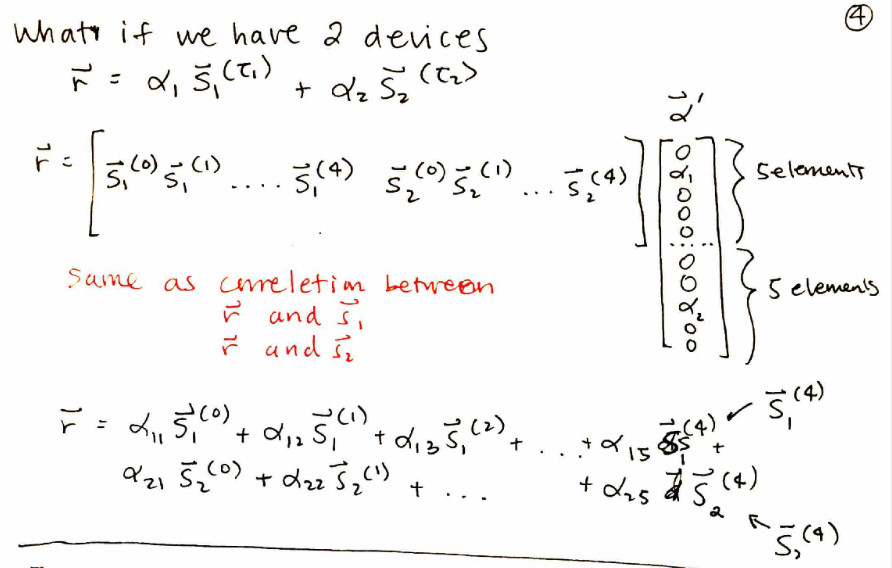 ④
What if we have 2 devices
r⃗ = α₁ s⃗₁^(τ₁) + α₂ s⃗₂^(τ₂)
α⃗'
r⃗ = [ s⃗₁^(0) s⃗₁^(1) .... s⃗₁^(4) s⃗₂^(0) s⃗₂^(1) ... s⃗₂^(4) ] [ 0 α₁ 0 0 0 ...... 0 0 α₂ 0 0 ]
5 elements
5 elements
Same as correletion between
r⃗ and s⃗₁
r⃗ and s⃗₂
r⃗ = α₁₁ s⃗₁^(0) + α₁₂ s⃗₁^(1) + α₁₃ s⃗₁^(2) + ... + α₁₅ s⃗₁^(4) + ↙ s⃗₁^(4)
α₂₁ s⃗₂^(0) + α₂₂ s⃗₂^(1) + ... + α₂₅ s⃗₂^(4)
↖ s⃗₂^(4)